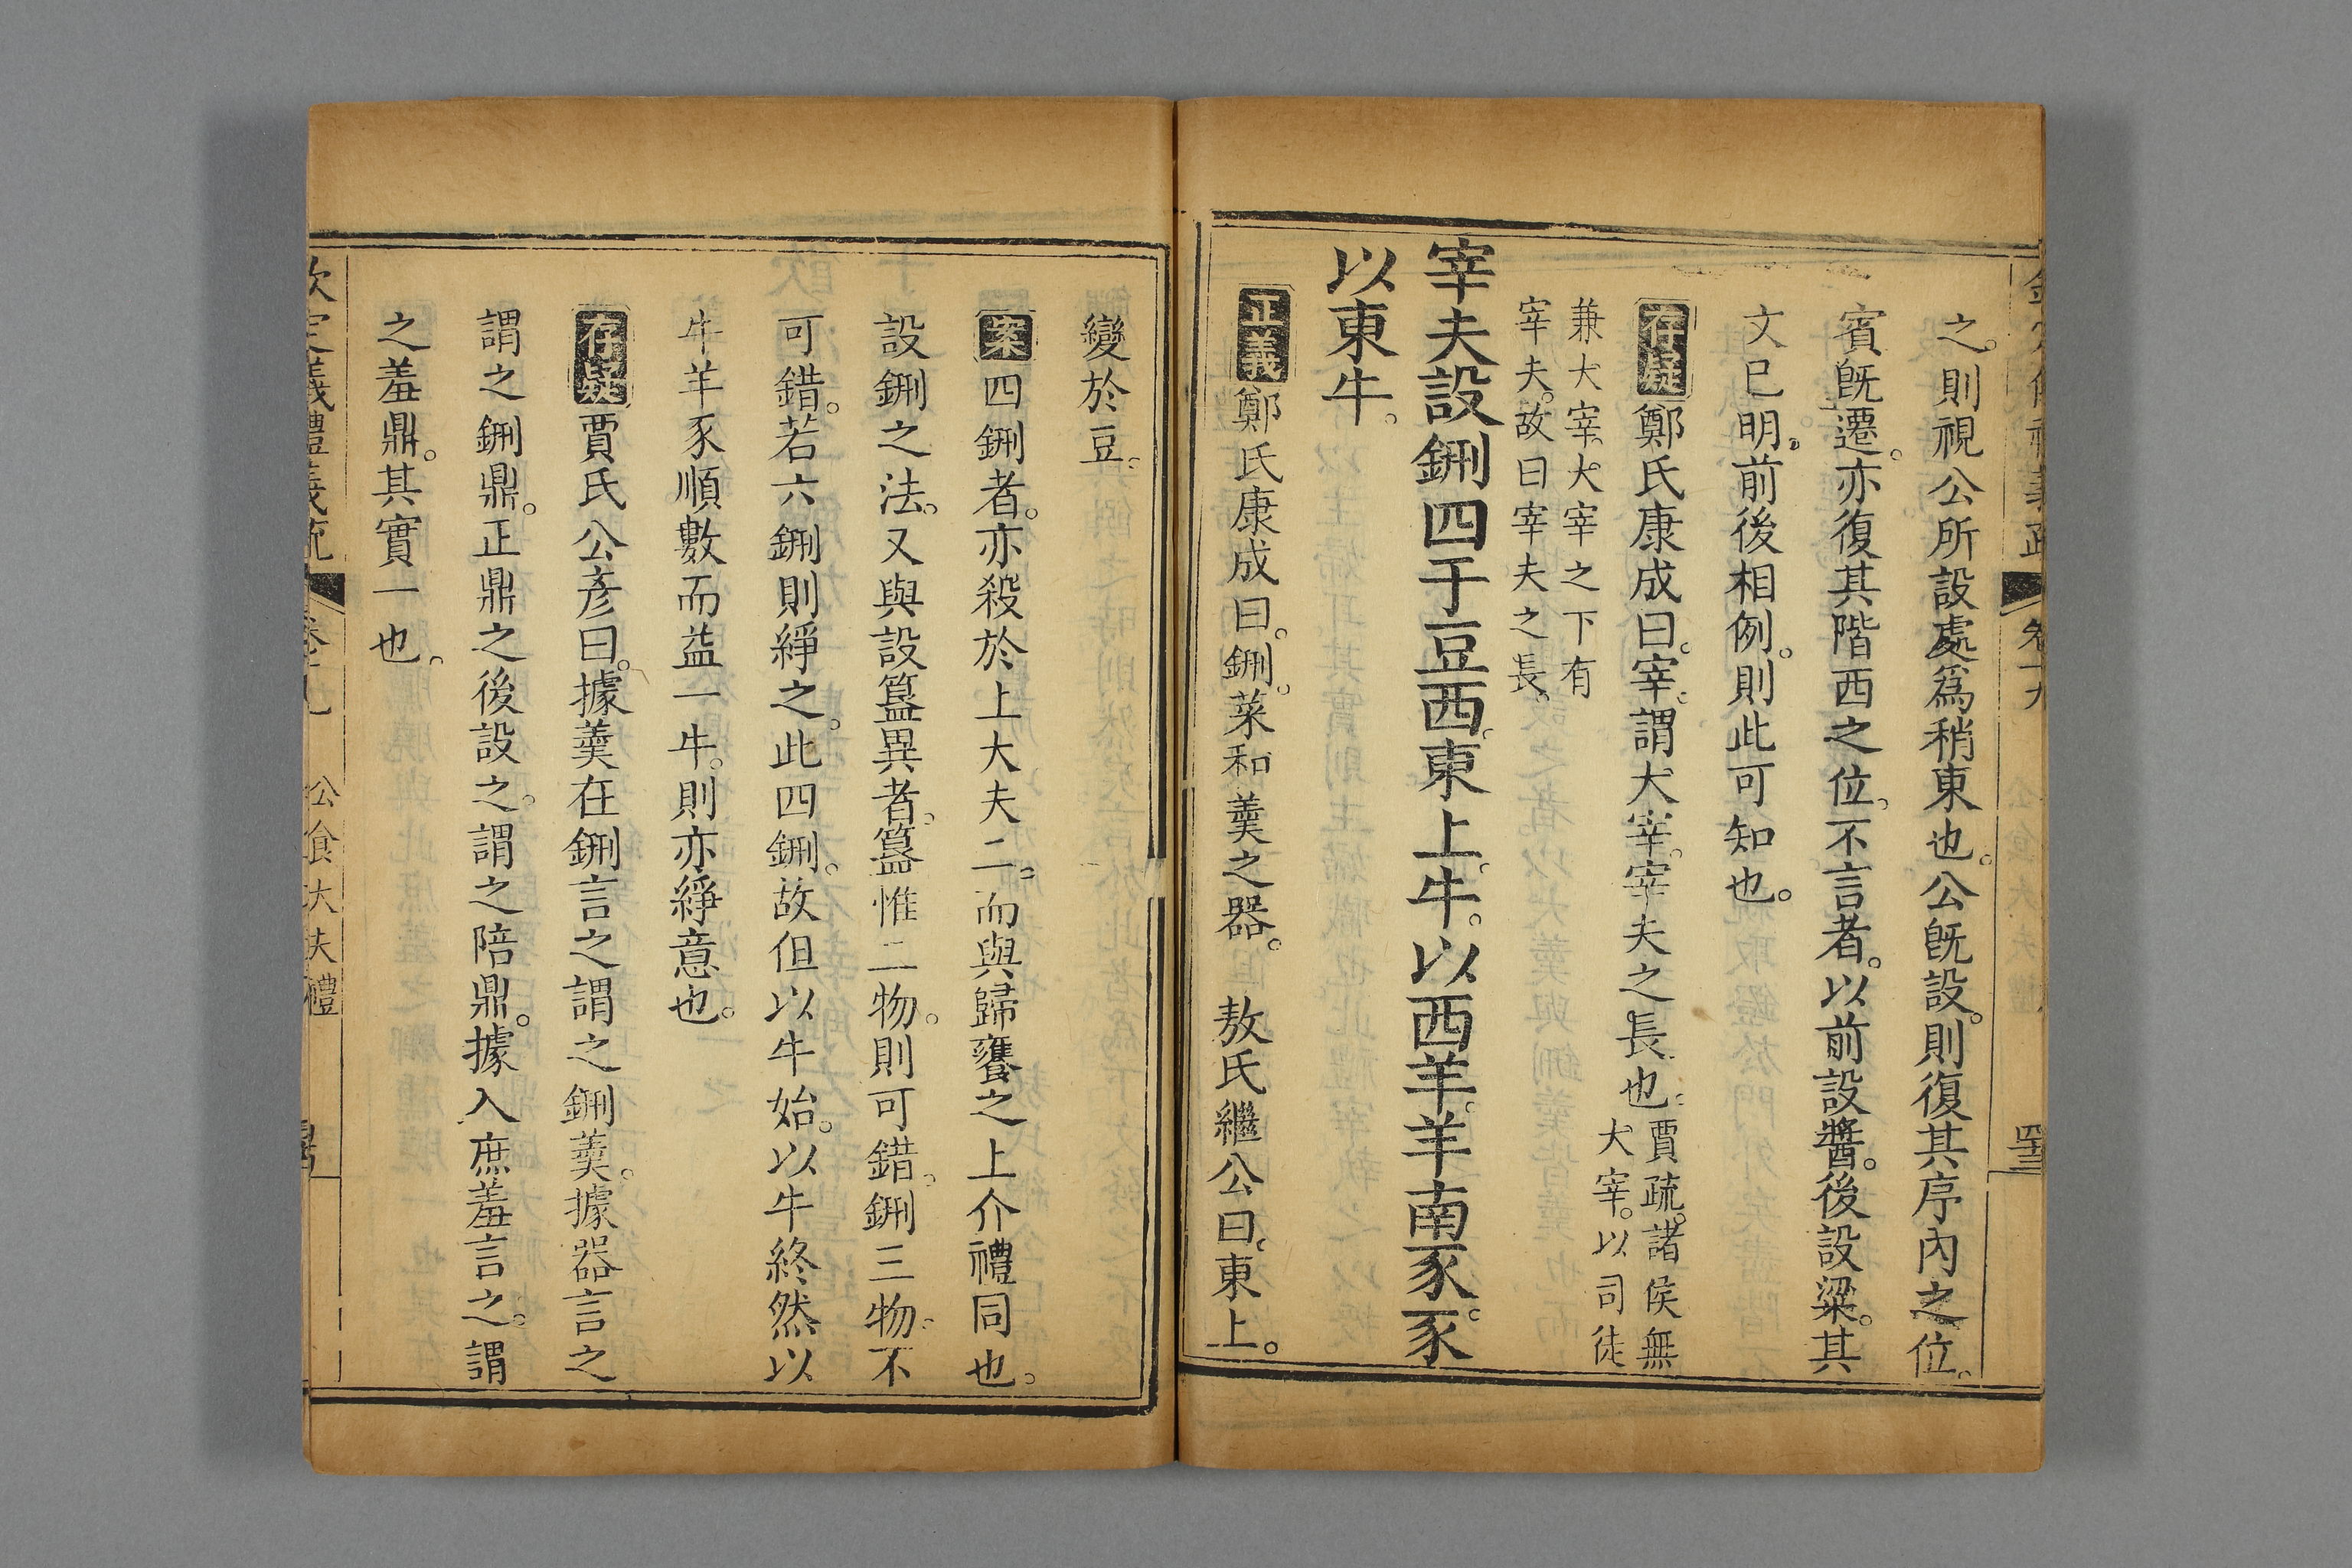 之。則視公所設處爲稍東也。公旣設。則復其序內之位。
賓旣遷。亦復其階西之位。不言者。以前設醬。後設粱。其
文已明。前後相例。則此可知也。
存疑鄭氏康成曰。宰。謂大宰。宰夫之長也。賈疏。諸侯無
大宰。以司徒
兼大宰。大宰之下有
宰夫。故曰宰夫之長。
宰夫設鉶四于豆西。東上。牛。以西羊。羊南豕。豕
以東牛。
正義鄭氏康成曰。鉶。菜和羹之器。敖氏繼公曰。東上。
變於豆。
案四鉶者。亦殺於上大夫二。而與歸饔之上介禮同也。
設鉶之法。又與設簋異者。簋惟二物。則可錯。鉶三物。不
可錯。若六鉶則綪之。此四鉶。故但以牛始。以牛終。然以
牛羊豕順數而益一牛。則亦綪意也。
存疑賈氏公彥曰。據羹在鉶言之謂之鉶羹。據器言之
謂之鉶鼎。正鼎之後設之。謂之陪鼎。據入庶羞言之。謂
之羞鼎。其實一也。
欽定義禮義疏 卷十九 公食大夫禮